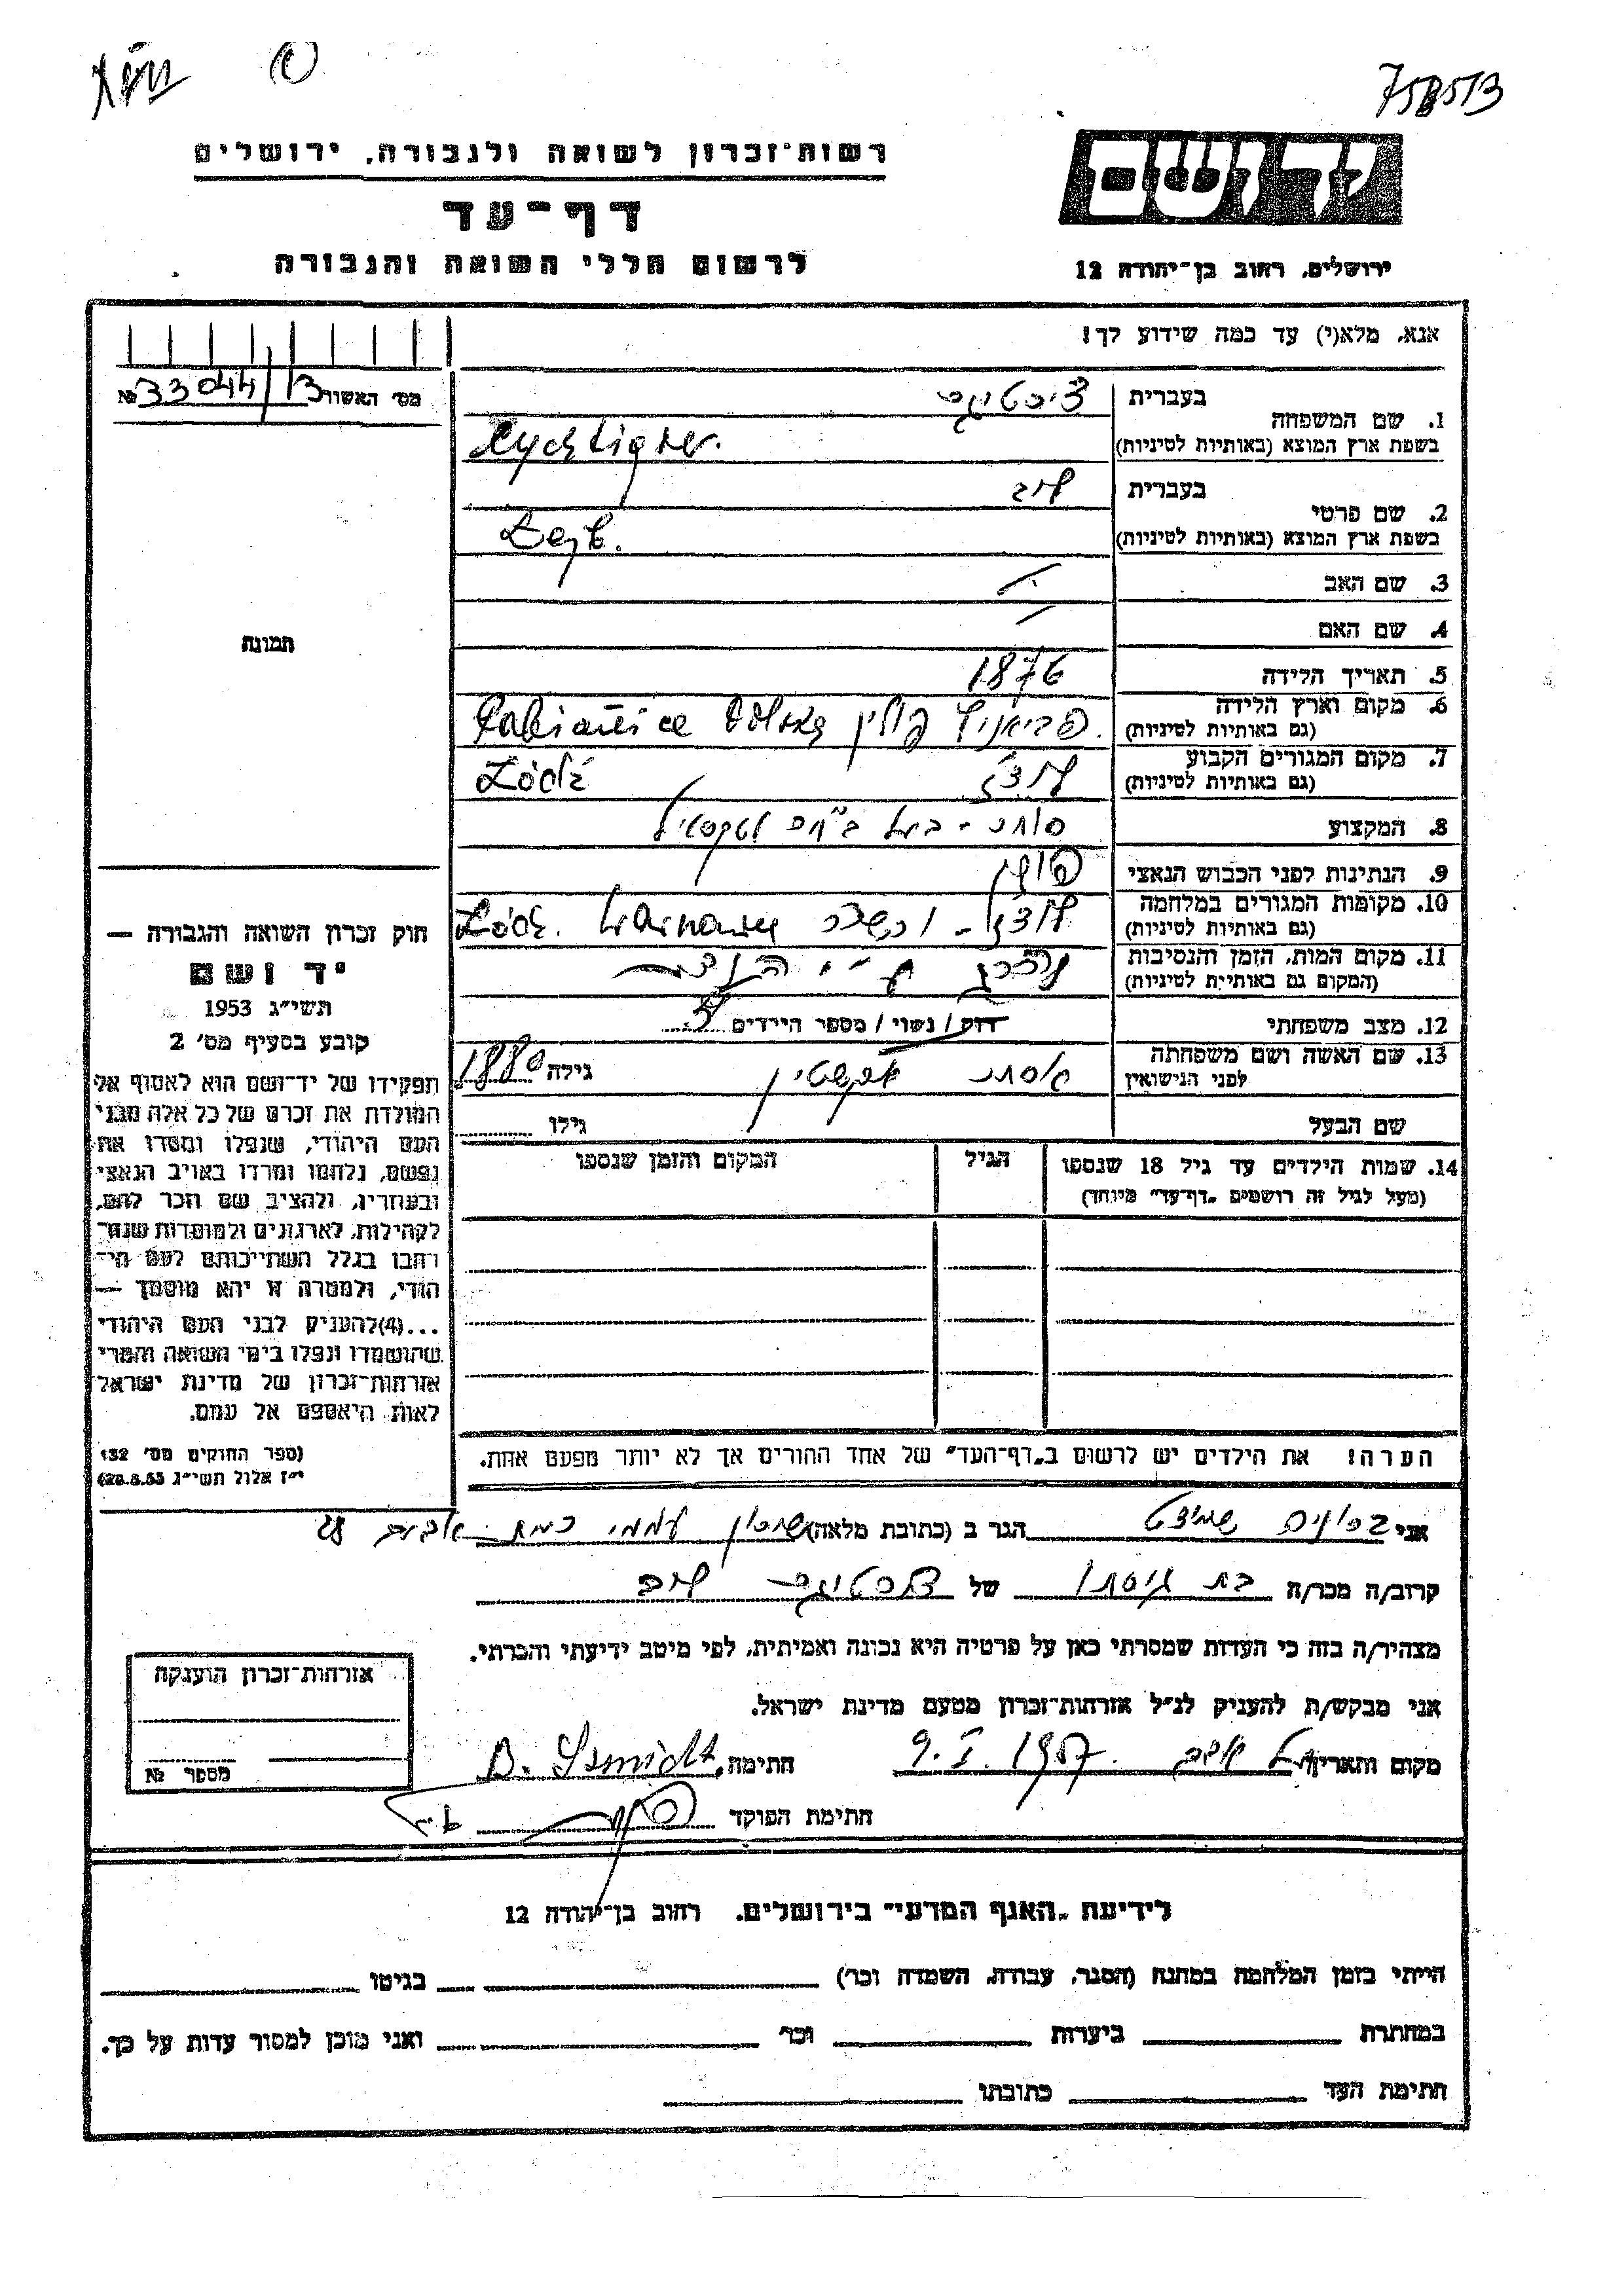 758513
רשות-זכרון לשואה ולגבורה, ירושלים
דף-עד
לרשום חללי השואה והגבורה
יד ושם
ירושלים, רחוב בן-יהודה 12
אנא, מלא(י) עד כמה שידוע לך!
מס' האשור 33044/13 №
1. שם המשפחה
בעברית
בשפת ארץ המוצא (באותיות לטיניות)
2. שם פרטי
בעברית לייב
בשפת ארץ המוצא (באותיות לטיניות) Lejb.
3. שם האב
4. שם האם
5. תאריך הלידה 1876
6. מקום וארץ הלידה
(גם באותיות לטיניות) פביאניץ פולין Polska Pabianice
7. מקום המגורים הקבוע
(גם באותיות לטיניות) לודז' Łódź
8. המקצוע סוחר - בעל בי"ח לטקסטיל
9. הנתינות לפני הכבוש הנאצי פולין
10. מקומות המגורים במלחמה
(גם באותיות לטיניות) לודז' - Łódź. Warszawa
11. מקום המות, הזמן והנסיבות
(המקום גם באותיות לטיניות) נהרג ע"י
12. מצב משפחתי רוק / נשוי / מספר הילדים 5
13. שם האשה ושם משפחתה
לפני הנישואין אסתר גילה 1880
שם הבעל גילו
14. שמות הילדים עד גיל 18 שנספו
(מעל לגיל זה רושמים "דף-עד" מיוחד)
הגיל
המקום והזמן שנספו
הערה! את הילדים יש לרשום ב"דף-העד" של אחד ההורים אך לא יותר מפעם אחת.
תמונה
חוק זכרון השואה והגבורה —
יד ושם
תשי"ג 1953
קובע בסעיף מס' 2
תפקידו של יד-ושם הוא לאסוף אל
המולדת את זכרם של כל אלה מבני
העם היהודי, שנפלו ומסרו את
נפשם, נלחמו ומרדו באויב הנאצי
ובעוזריו, ולהציב שם וזכר להם,
לקהילות, לארגונים ולמוסדות שנח-
רבו בגלל השתייכותם לעם הי-
הודי, ולמטרה זו יהא מוסמך —
...(4)להעניק לבני העם היהודי
שהושמדו ונפלו בימי השואה והמרי
אזרחות-זכרון של מדינת ישראל
לאות היאספם אל עמם.
(ספר החוקים מס' 132
י"ז אלול תשי"ג 28.8.53)
אני שמידט הגר ב (כתובת מלאה) שכון עממי רמת אביב 28
קרוב/ה מכר/ה בת גיסתו של לייב
מצהיר/ה בזה כי העדות שמסרתי כאן על פרטיה היא נכונה ואמיתית, לפי מיטב ידיעתי והכרתי.
אני מבקש/ת להעניק לנ"ל אזרחות-זכרון מטעם מדינת ישראל.
מקום ותאריך תל אביב 9.I.1957. חתימה B. Szmidt
חתימת הפוקד
אזרחות-זכרון הוענקה
מספר №
לידיעת "האגף המדעי" בירושלים, רחוב בן-יהודה 12
הייתי בזמן המלחמה במחנה (הסגר, עבודה, השמדה וכו') בגיטו
במחתרת ביערות וכו' ואני מוכן למסור עדות על כך.
חתימת העד כתובתו